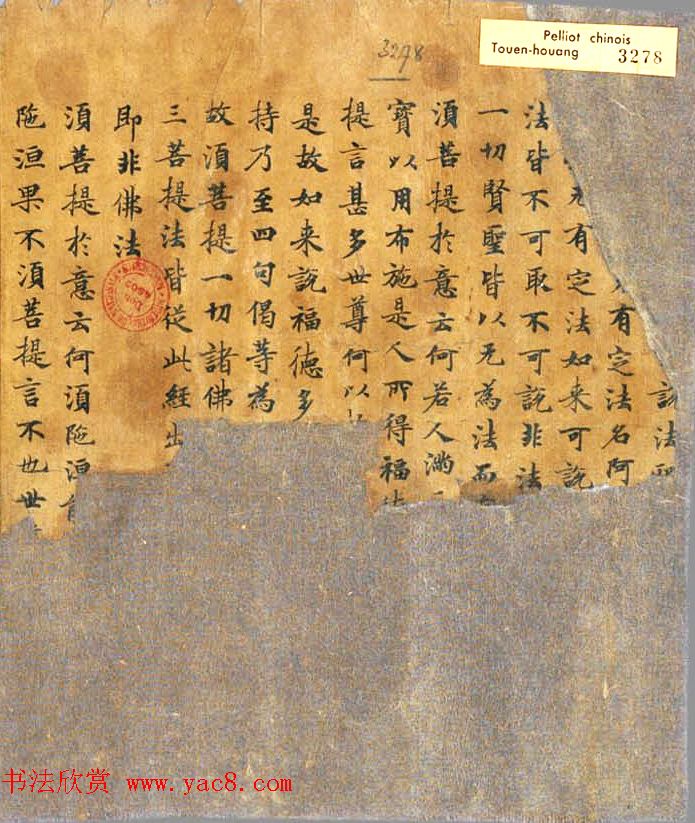 Pelliot chinois
Touen-houang 3278
3278
說法
有定法名阿
无有定法如来可說
法皆不可取不可說非法
一切賢聖皆以无為法而
須菩提於意云何若人滿
寶以用布施是人所得福
提言甚多世尊何以
是故如来說福德多
持乃至四句偈等為
故須菩提一切諸佛
三菩提法皆從此經出
即非佛法
須菩提於意云何須陁洹
陁洹果不須菩提言不也世
书法欣赏 www.yac8.com